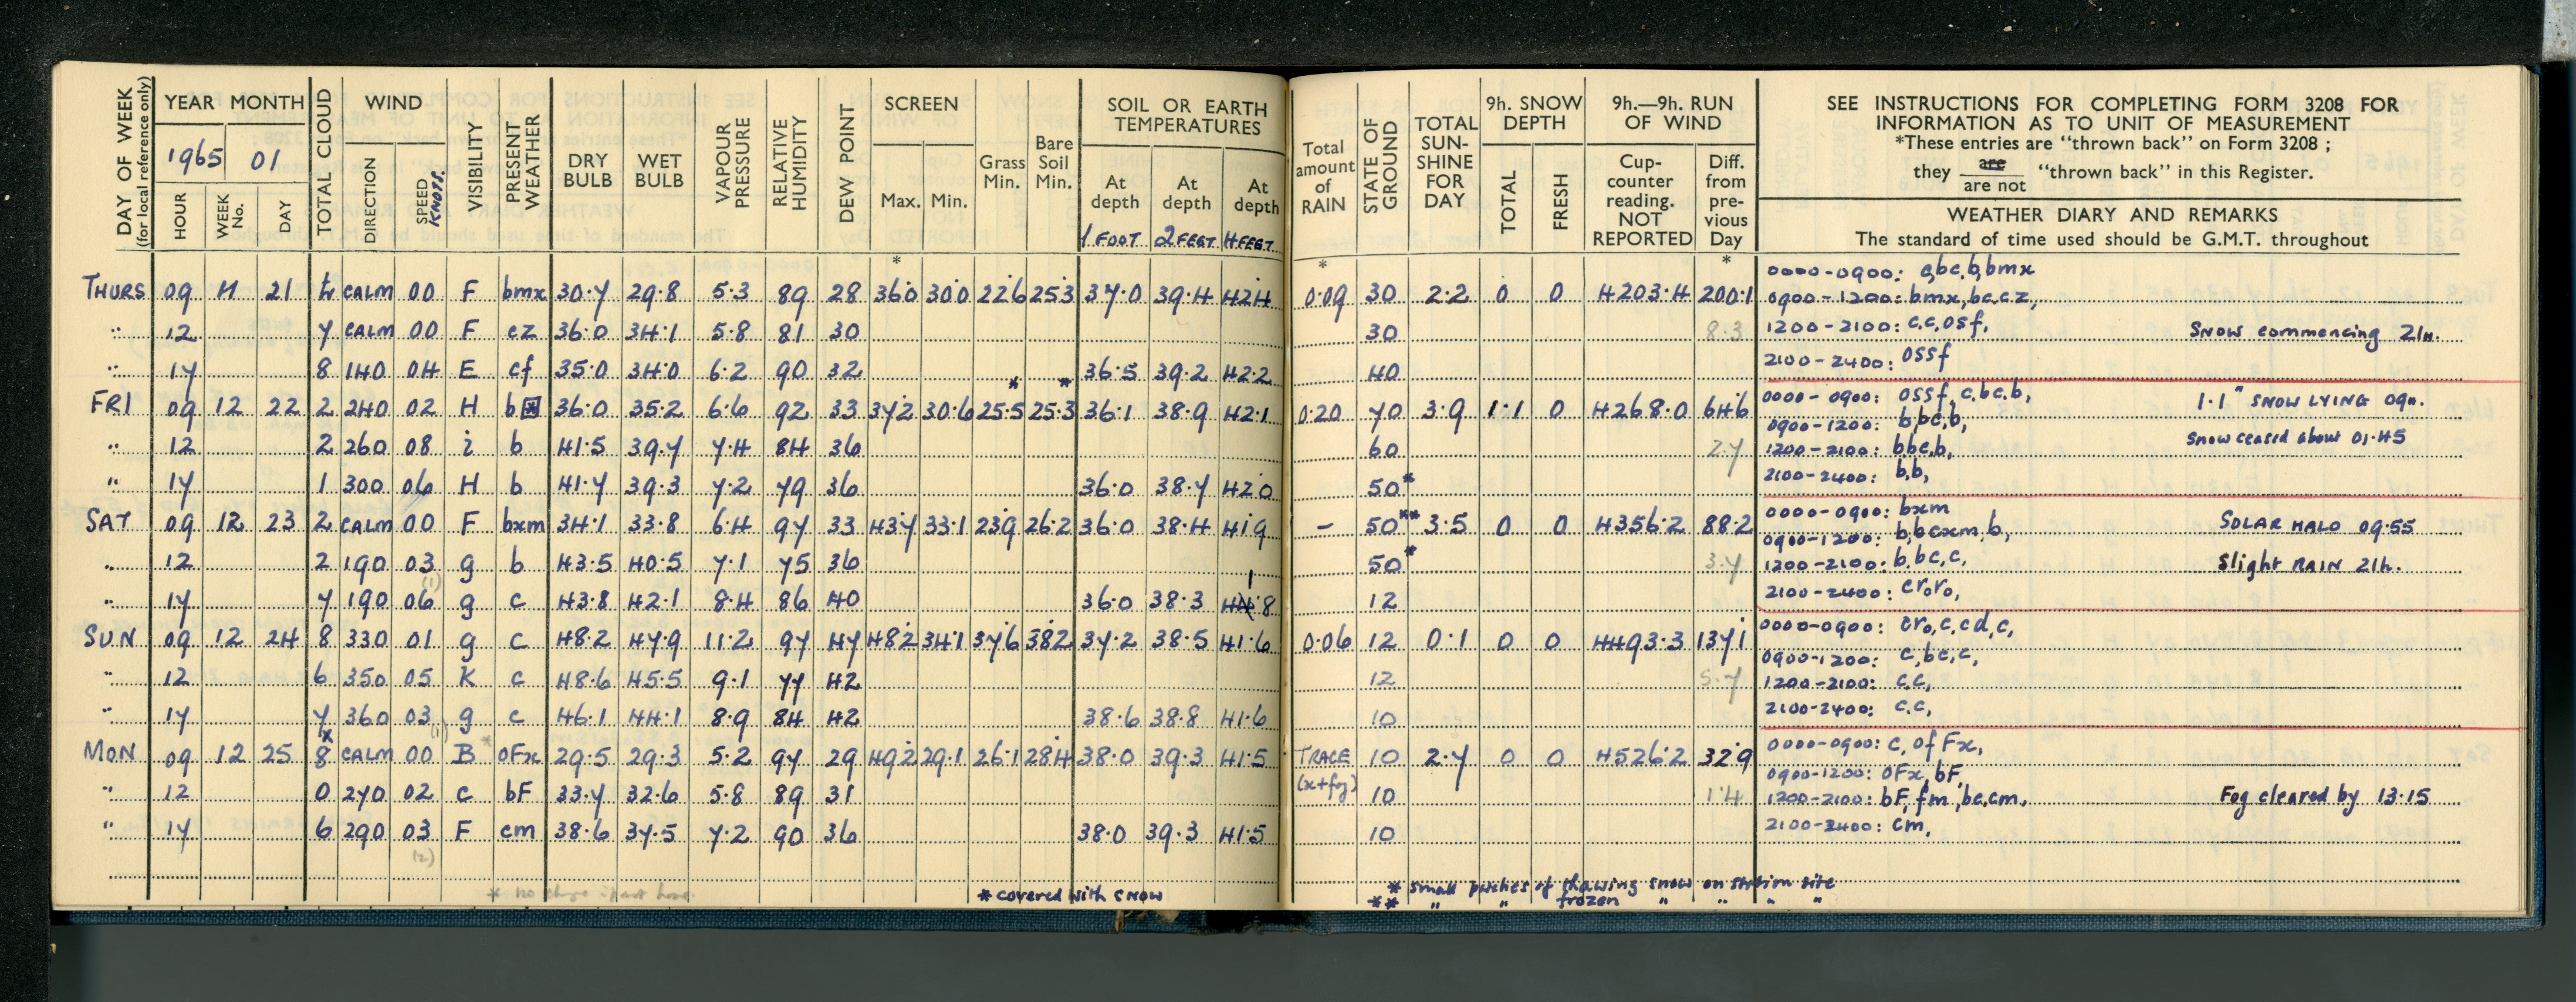 DAY OF WEEK (for local reference only)
YEAR MONTH
1965 01
HOUR WEEK No. DAY
TOTAL CLOUD
WIND
DIRECTION SPEED KNOTS.
VISIBILITY
PRESENT WEATHER
DRY BULB
WET BULB
VAPOUR PRESSURE
RELATIVE HUMIDITY
DEW POINT
SCREEN
Max. Min.
Grass Min.
Bare Soil Min.
SOIL OR EARTH TEMPERATURES
At depth At depth At depth
1 FOOT 2 FEET 4 FEET
Total amount of RAIN
STATE OF GROUND
TOTAL SUN-SHINE FOR DAY
9h. SNOW DEPTH
TOTAL FRESH
9h.—9h. RUN OF WIND
Cup-counter reading. NOT REPORTED
Diff. from pre-vious Day
SEE INSTRUCTIONS FOR COMPLETING FORM 3208 FOR
INFORMATION AS TO UNIT OF MEASUREMENT
*These entries are "thrown back" on Form 3208 ;
they are / are not "thrown back" in this Register.
WEATHER DIARY AND REMARKS
The standard of time used should be G.M.T. throughout
* * *
THURS 09 11 21 CALM 00 F bmx 30.7 29.8 5.3 89 28 36.0 30.0 22.6 25.3 37.0 39.4 42.4 0.09 30 2.2 0 0 4203.4 200.1
0000-0900: c,bc,b,bmx
0900-1200: bmx,bc,cz,
" 12 7 CALM 00 F cz 36.0 34.1 5.8 81 30 30 8.3
1200-2100: c,c,osf, SNOW commencing 21h.
" 17 8 140 04 E cf 35.0 34.0 6.2 90 32 36.5 39.2 42.2 40
2100-2400: ossf
FRI 09 12 22 2 240 02 H b* 36.0 35.2 6.6 92 33 37.2 30.6 25.5* 25.3* 36.1 38.9 42.1 0.20 70 3.9 1.1 0 4268.0 64.6
0000-0900: ossf, c,bc,b, 1.1" SNOW LYING 09h.
0900-1200: b,bc,b,
" 12 2 260 08 i b 41.5 39.7 7.4 84 36 60 2.7
1200-2100: b,bc,b, Snow ceased about 01.45
" 17 1 300 06 H b 41.7 39.3 7.2 79 36 36.0 38.7 42.0 50*
2100-2400: b,b,
SAT 09 12 23 2 CALM 00 F bxm 34.1 33.8 6.4 97 33 43.7 33.1 23.9 26.2 36.0 38.4 41.9 – 50** 3.5 0 0 4356.2 88.2
0000-0900: bxm SOLAR HALO 09.55
0900-1200: b,bcxm,b,
" 12 2 190 03 g b 43.5 40.5 7.1 75 36 50* 3.7
(1)
1200-2100: b,bc,c, Slight RAIN 21h.
" 17 7 190 06 g c 43.8 42.1 8.4 86 40 36.0 38.3 41.8 12
2100-2400: cr₀r₀,
SUN 09 12 24 8 330 01 g c 48.2 47.9 11.2 97 47 48.2 34.1 37.6 38.2 37.2 38.5 41.6 0.06 12 0.1 0 0 4493.3 137.1
0000-0900: cr₀,c,cd,c,
0900-1200: c,bc,c,
" 12 6 350 05 K c 48.6 45.5 9.1 77 42 12 5.7
1200-2100: c,c,
" 17 7 360 03 g c 46.1 44.1 8.9 84 42 38.6 38.8 41.6 10
(1)
2100-2400: c,c,
MON 09 12 25 8x CALM 00 B oFx* 29.5 29.3 5.2 97 29 49.2 29.1 26.1 28.4 38.0 39.3 41.5 TRACE 10 2.7 0 0 4526.2 32.9
(x+fog)
0000-0900: c, of Fx,
0900-1200: oFx, bF,
" 12 0 270 02 C bF 33.7 32.6 5.8 89 31 10 1.4
1200-2100: bF, fm, bc,cm, Fog cleared by 13.15
" 17 6 290 03 F cm 38.6 37.5 7.2 90 36 38.0 39.3 41.5 10
(2)
2100-2400: cm,
* covered with snow
* small patches of thawing snow on station site
** " " frozen " " " "